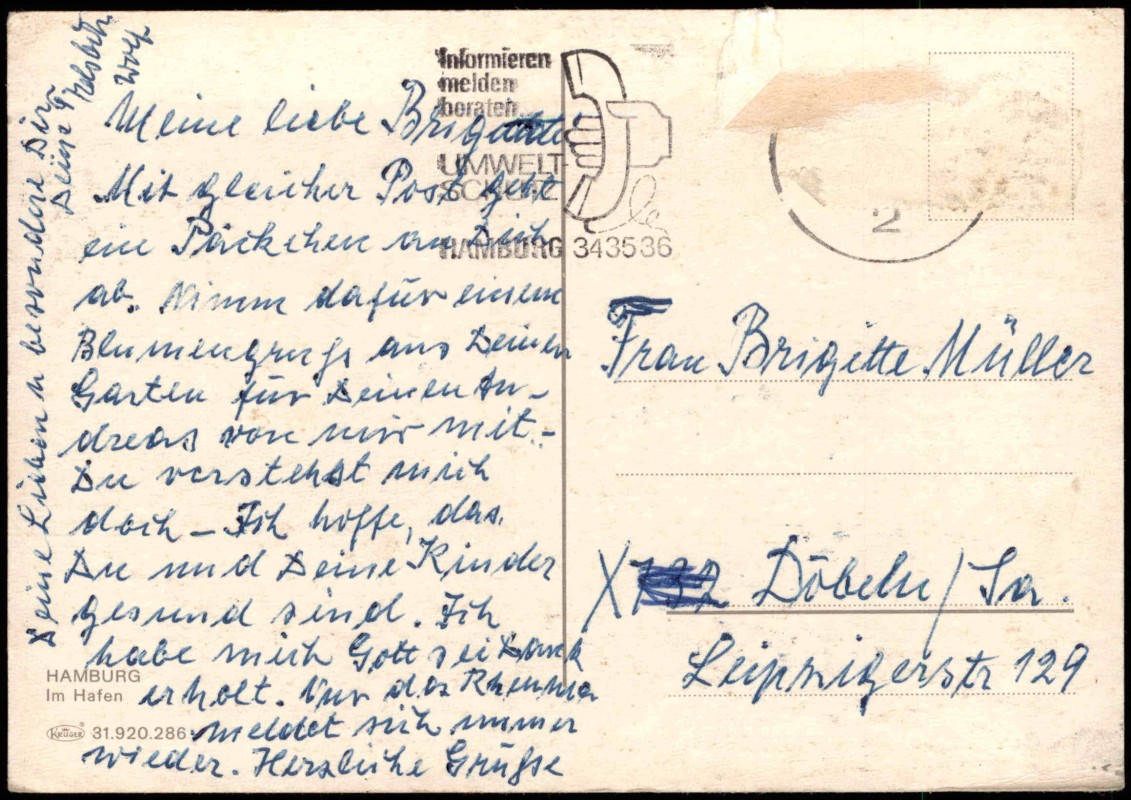 Informieren
melden
beraten
UMWELT-
SCHUTZ
HAMBURG 343536
2
Meine liebe Brigitte
Mit gleicher Post geht
ein Päckchen an Dich
ab. Nimm dafür einen
Blumengruß aus Deinen
Garten für Deinen An-
dreas von mir mit.-
Du verstehst mich
doch – Ich hoffe, das
Du und Deine Kinder
gesund sind. Ich
habe mich Gott sei Dank
erholt. Nur das Rheuma
meldet sich immer
wieder. Herzliche Grüße
Deine Lieben u besondere Dir
Dein
Wolf
Frau Brigitte Müller
X Döbeln/Sa.
Leipzigerstr 129
HAMBURG
Im Hafen
KRÜGER 31.920.286